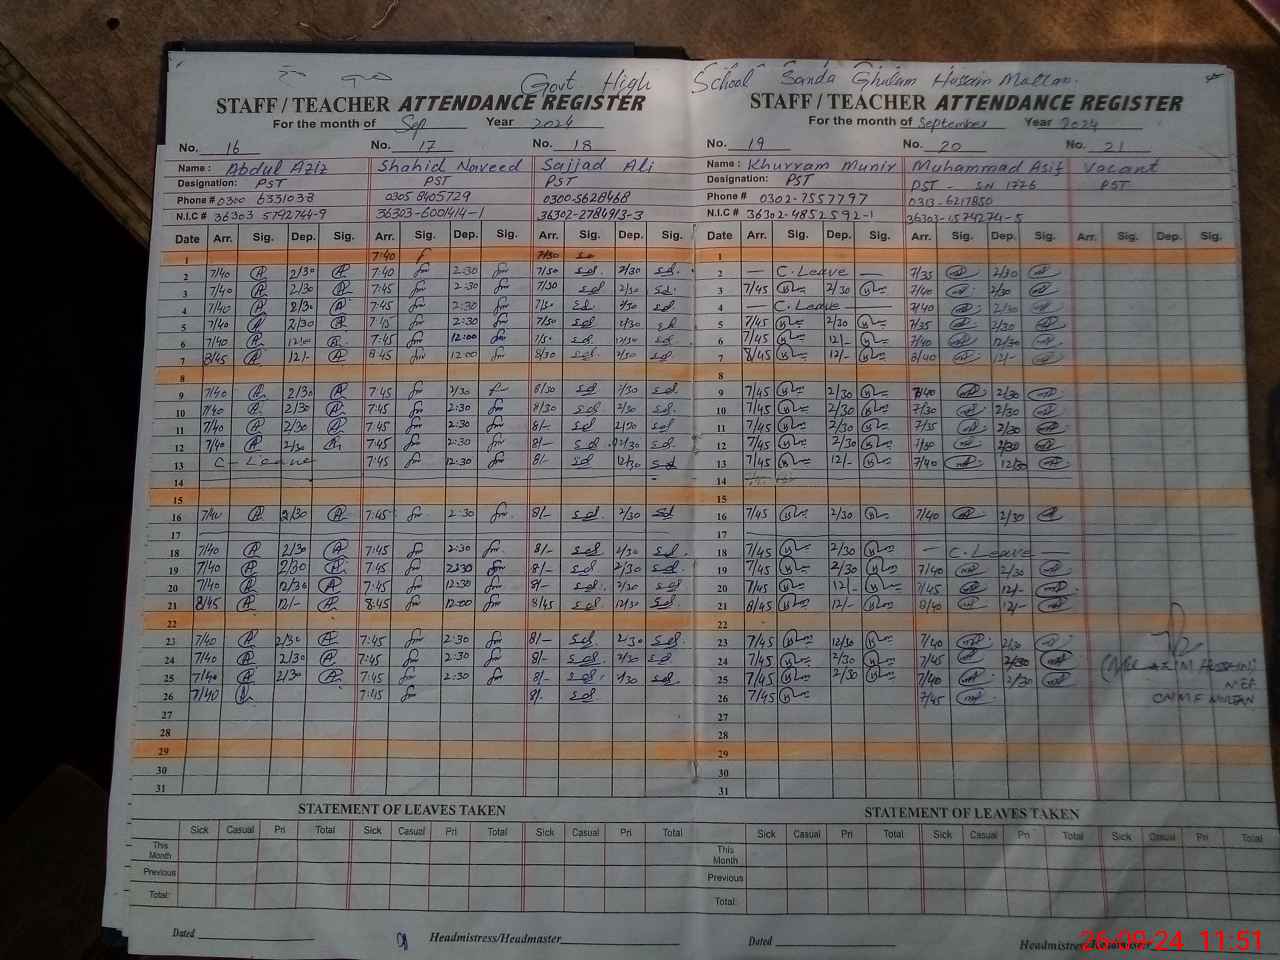 Govt High School Sanda Ghulam Hussain
STAFF / TEACHER ATTENDANCE REGISTER
For the month of Sep Year 2024
No. 16 No. 17 No. 18
Name: Abdul Aziz Shahid Naveed Sajjad Ali
Designation: PST PST PST
Phone # 0300 6331038 0305 8405729 0300-5628468
N.I.C # 36303 5792744-9 36303-6001414-1 36302-2784913-3
Date Arr. Sig. Dep. Sig. Arr. Sig. Dep. Sig. Arr. Sig. Dep. Sig.
1 7:40 7/30
2 7/40 A 2/30 A 7:40 2:30 7/50 sd. 2/30 sd.
3 7/40 A 2/30 A 7:45 2:30 7/50 sd 2/30 sd.
4 7/40 A 2/30 A 7:45 2:30 7/50 sd. 2/30 sd
5 7/40 A 2/30 A 7:45 2:30 7/50 sd 2/30 sd
6 7/40 A 12:00 A 7:45 12:00 7/50 sd 12/30 sd
7 8/45 A 12/- A 8:45 12:00 8/30 sd 2/30 sd
8
9 7/40 A 2/30 A 7:45 2/30 8/30 sd 2/30 sd
10 7/40 A 2/30 A 7:45 2:30 8/30 sd 2/30 sd
11 7/40 A 2/30 A 7:45 2:30 8/- sd 2/30 sd
12 7/40 A 2/30 A 7:45 2:30 8/- sd 2/30 sd
13 C-Leave 7:45 12:30 8/- sd 12/30 sd
14
15
16 7/40 A 2/30 A 7:45 2:30 8/- sd 2/30 sd
17
18 7/40 A 2/30 A 7:45 2:30 8/- sd 2/30 sd
19 7/40 A 2/30 A 7:45 2:30 8/- sd 2/30 sd
20 7/40 A 12/30 A 7:45 12:30 8/- sd. 2/30 sd
21 8/45 A 12/- A 8:45 12:00 8/45 sd. 12/30 sd
22
23 7/40 A 2/30 A 7:45 2:30 8/- sd. 2/30 sd.
24 7/40 A 2/30 A 7:45 2:30 8/- sd. 2/30 sd
25 7/40 A 2/30 A 7:45 2:30 8/- sd. 2/30 sd
26 7/40 7:45 8/- sd
27
28
29
30
31
STATEMENT OF LEAVES TAKEN
Sick Casual Pri Total Sick Casual Pri Total Sick Casual Pri Total
This Month
Previous
Total:
Dated Headmistress/Headmaster
STAFF / TEACHER ATTENDANCE REGISTER
For the month of September Year 2024
No. 19 No. 20 No. 21
Name: Khurram Munir Muhammad Asif Vacant
Designation: PST PST - S.N 1776 PST
Phone # 0302-7557797 0313-6217850
N.I.C # 36302-4852592-1 36303-1574274-5
Date Arr. Sig. Dep. Sig. Arr. Sig. Dep. Sig. Arr. Sig. Dep. Sig.
1
2 — C. Leave — 7/35 2/30
3 7/45 2/30 7/40 2/30
4 — C. Leave — 7/40 2/30
5 7/45 2/30 7/35 2/30
6 7/45 12/- 7/40 12/30
7 8/45 12/- 8/40 12/-
8
9 7/45 2/30 7/40 2/30
10 7/45 2/30 7/30 2/30
11 7/45 2/30 7/35 2/30
12 7/45 2/30 7/30 2/30
13 7/45 12/- 7/40 12/30
14
15
16 7/45 2/30 7/40 2/30
17
18 7/45 2/30 — C. Leave —
19 7/45 2/30 7/40 2/30
20 7/45 12/- 7/45 12/-
21 8/45 12/- 8/40 12/-
22
23 7/45 12/30 7/40 2/30
24 7/45 2/30 7/45 2/30
25 7/45 2/30 7/40 2/30
26 7/45 7/45
27
28
29
30
31
STATEMENT OF LEAVES TAKEN
Sick Casual Pri Total Sick Casual Pri Total Sick Casual Pri Total
This Month
Previous
Total:
Dated Headmistress/Headmaster
26-09-24 11:51